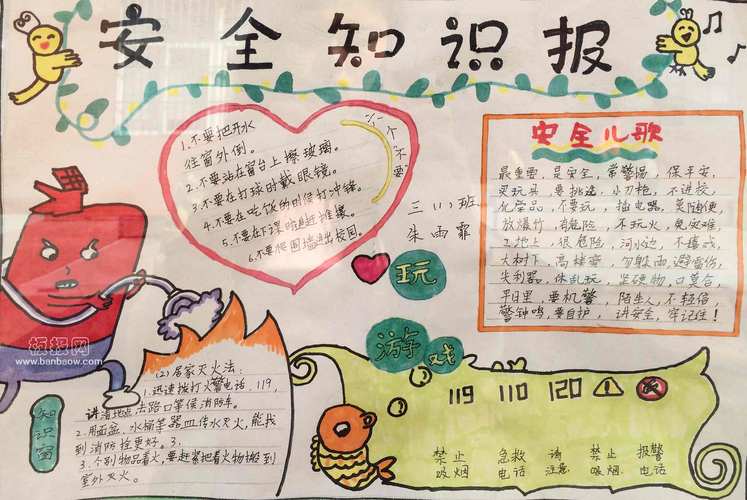 安全知识报
六个"不要"
1.不要把开水
往窗外倒。
2.不要站在窗台上擦玻璃。
3.不要在打球时戴眼镜。
4.不要在吃饭的时候打冲锋。
5.不要在下课时追赶推壤。
6.不要爬围墙进出校园。
三(1)班
朱雨霏
安全儿歌
最重要，是安全，常警惕，保平安，
买玩具，要挑选，小刀枪，不进校，
化学品，不要玩，插电器，莫随便，
放爆竹，有危险，不玩火，免避难
工地上，很危险，河水边，不嬉戏，
大树下，高挂壁，勿躲雨，避雷伤，
尖利器，休乱玩，坚硬物，口莫含，
平日里，要机警，陌生人，不轻信，
警钟鸣，要自护，讲安全，牢记住！
玩
游戏
板报网
www.banbaow.com
知识窗
(2)居家灭火法：
1.迅速拨打火警电话，119，
讲清地点去路口等候消防车。
2.用面盆、水桶等器皿传水灭火，能找
到消防栓更好。3，
3.个别物品着火，要赶紧把着火物搬到
室外灭火。
119 110 120
禁止吸烟
急救电话
请注意
禁止吸烟
报警电话